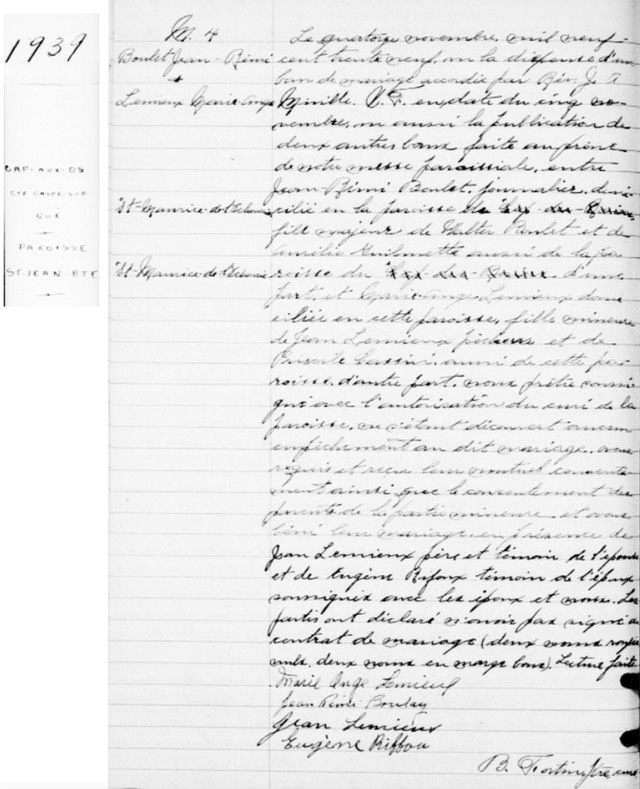 1939
CAP-AUX-OS
CTE GASPE-SUD
QUE
PAROISSE
ST-JEAN-BTE
M. 4
Boulet Jean-Rémi
+
Lemieux Marie-Ange
St-Maurice-de-l'Echouerie
St-Maurice-de-l'Echouerie
Le quatorze novembre, mil neuf-
cent trente neuf, vu la dispense d'un
ban de mariage accordée par Rév. J. A.
Miville. V. F. en date du cinq no-
vembre, vu aussi la publication de
deux autres bans faite au prône
de notre messe paroissiale, entre
Jean-Rémi Boulet, journalier, domi-
cilié en la paroisse de
fils majeur de Walter Boulet et de
Amélie Guilmette aussi de la pa-
roisse du d'une
part, et Marie-Ange Lemieux domi-
ciliée en cette paroisse, fille mineure
de Jean Lemieux pêcheur et de
Priscile Cassivi, aussi de cette pa-
roisse, d'autre part, nous prêtre soussi-
gné avec l'autorisation du curé de la
paroisse, ne s'étant découvert aucun
empêchement au dit mariage, avons
requis et reçu leur mutuel consente-
ment ainsi que le consentement des
parents de la partie mineure et avons
béni leur mariage en présence de
Jean Lemieux père et témoin de l'épouse
et de Eugène Rifoux témoin de l'époux
soussignés avec les époux et nous. Les
partis ont déclaré n'avoir pas signé de
contrat de mariage (deux mots rayés
nuls, deux mots en marge bons). Lecture faite.
Marie Ange Lemieux
Jean Rémi Boulay
Jean Lemieux
Eugène Riffou
B. Fortin, ptre curé